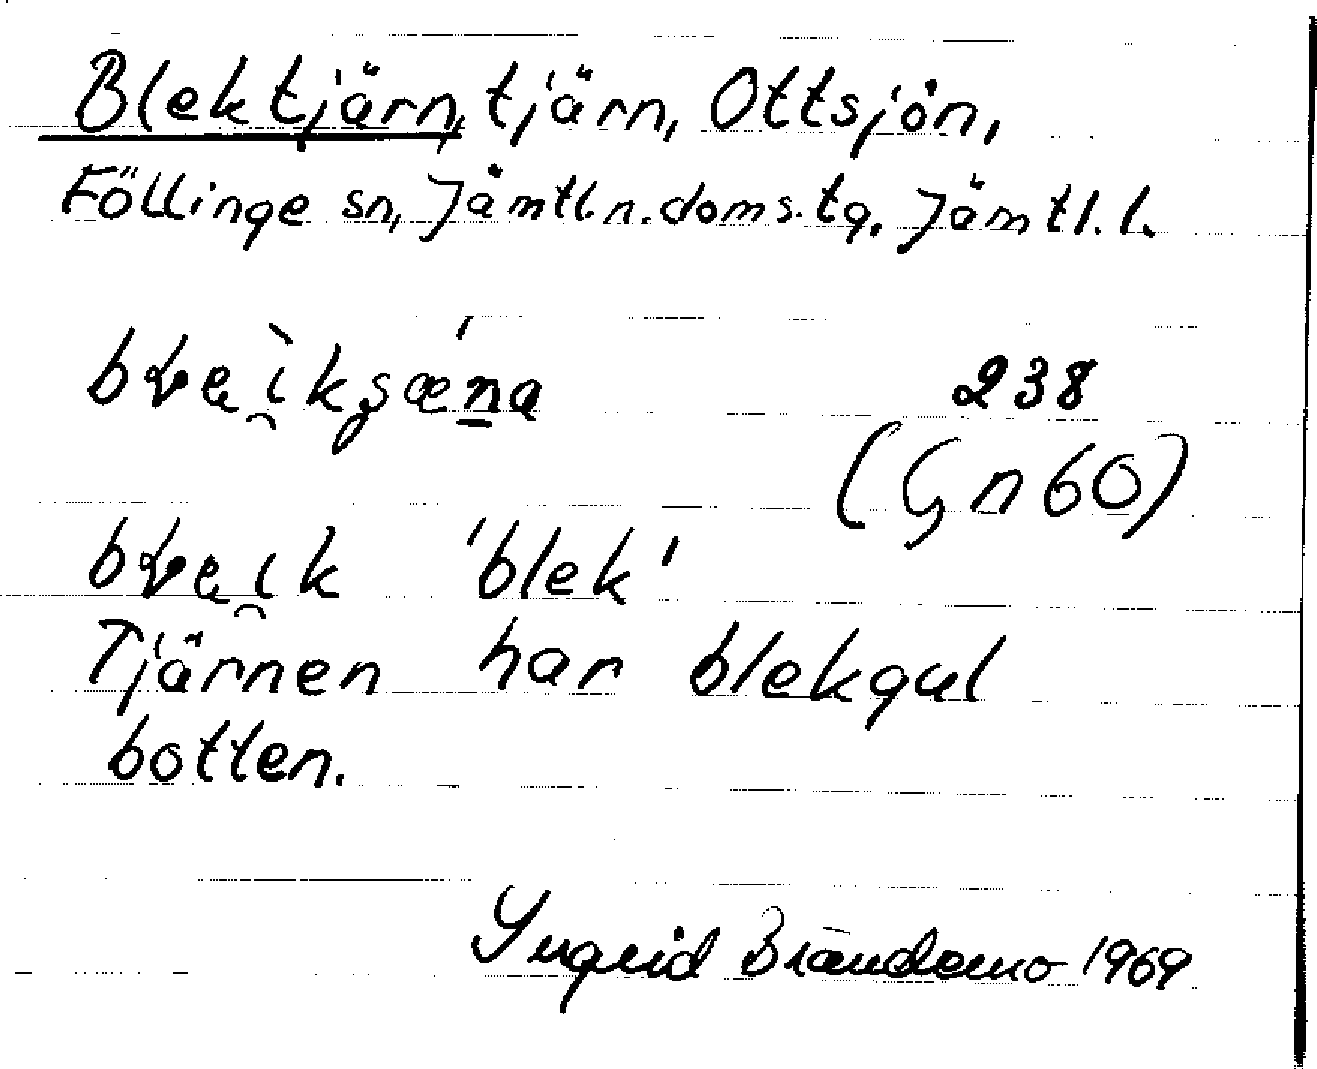 Blektjärn, tjärn, Ottsjön,
Föllinge sn, Jämtl.n.doms.tg. Jämtl.l.
238
(Gn 60)
'blek'
Tjärnen har blekgul
botten.
Ingrid Brändemo 1969